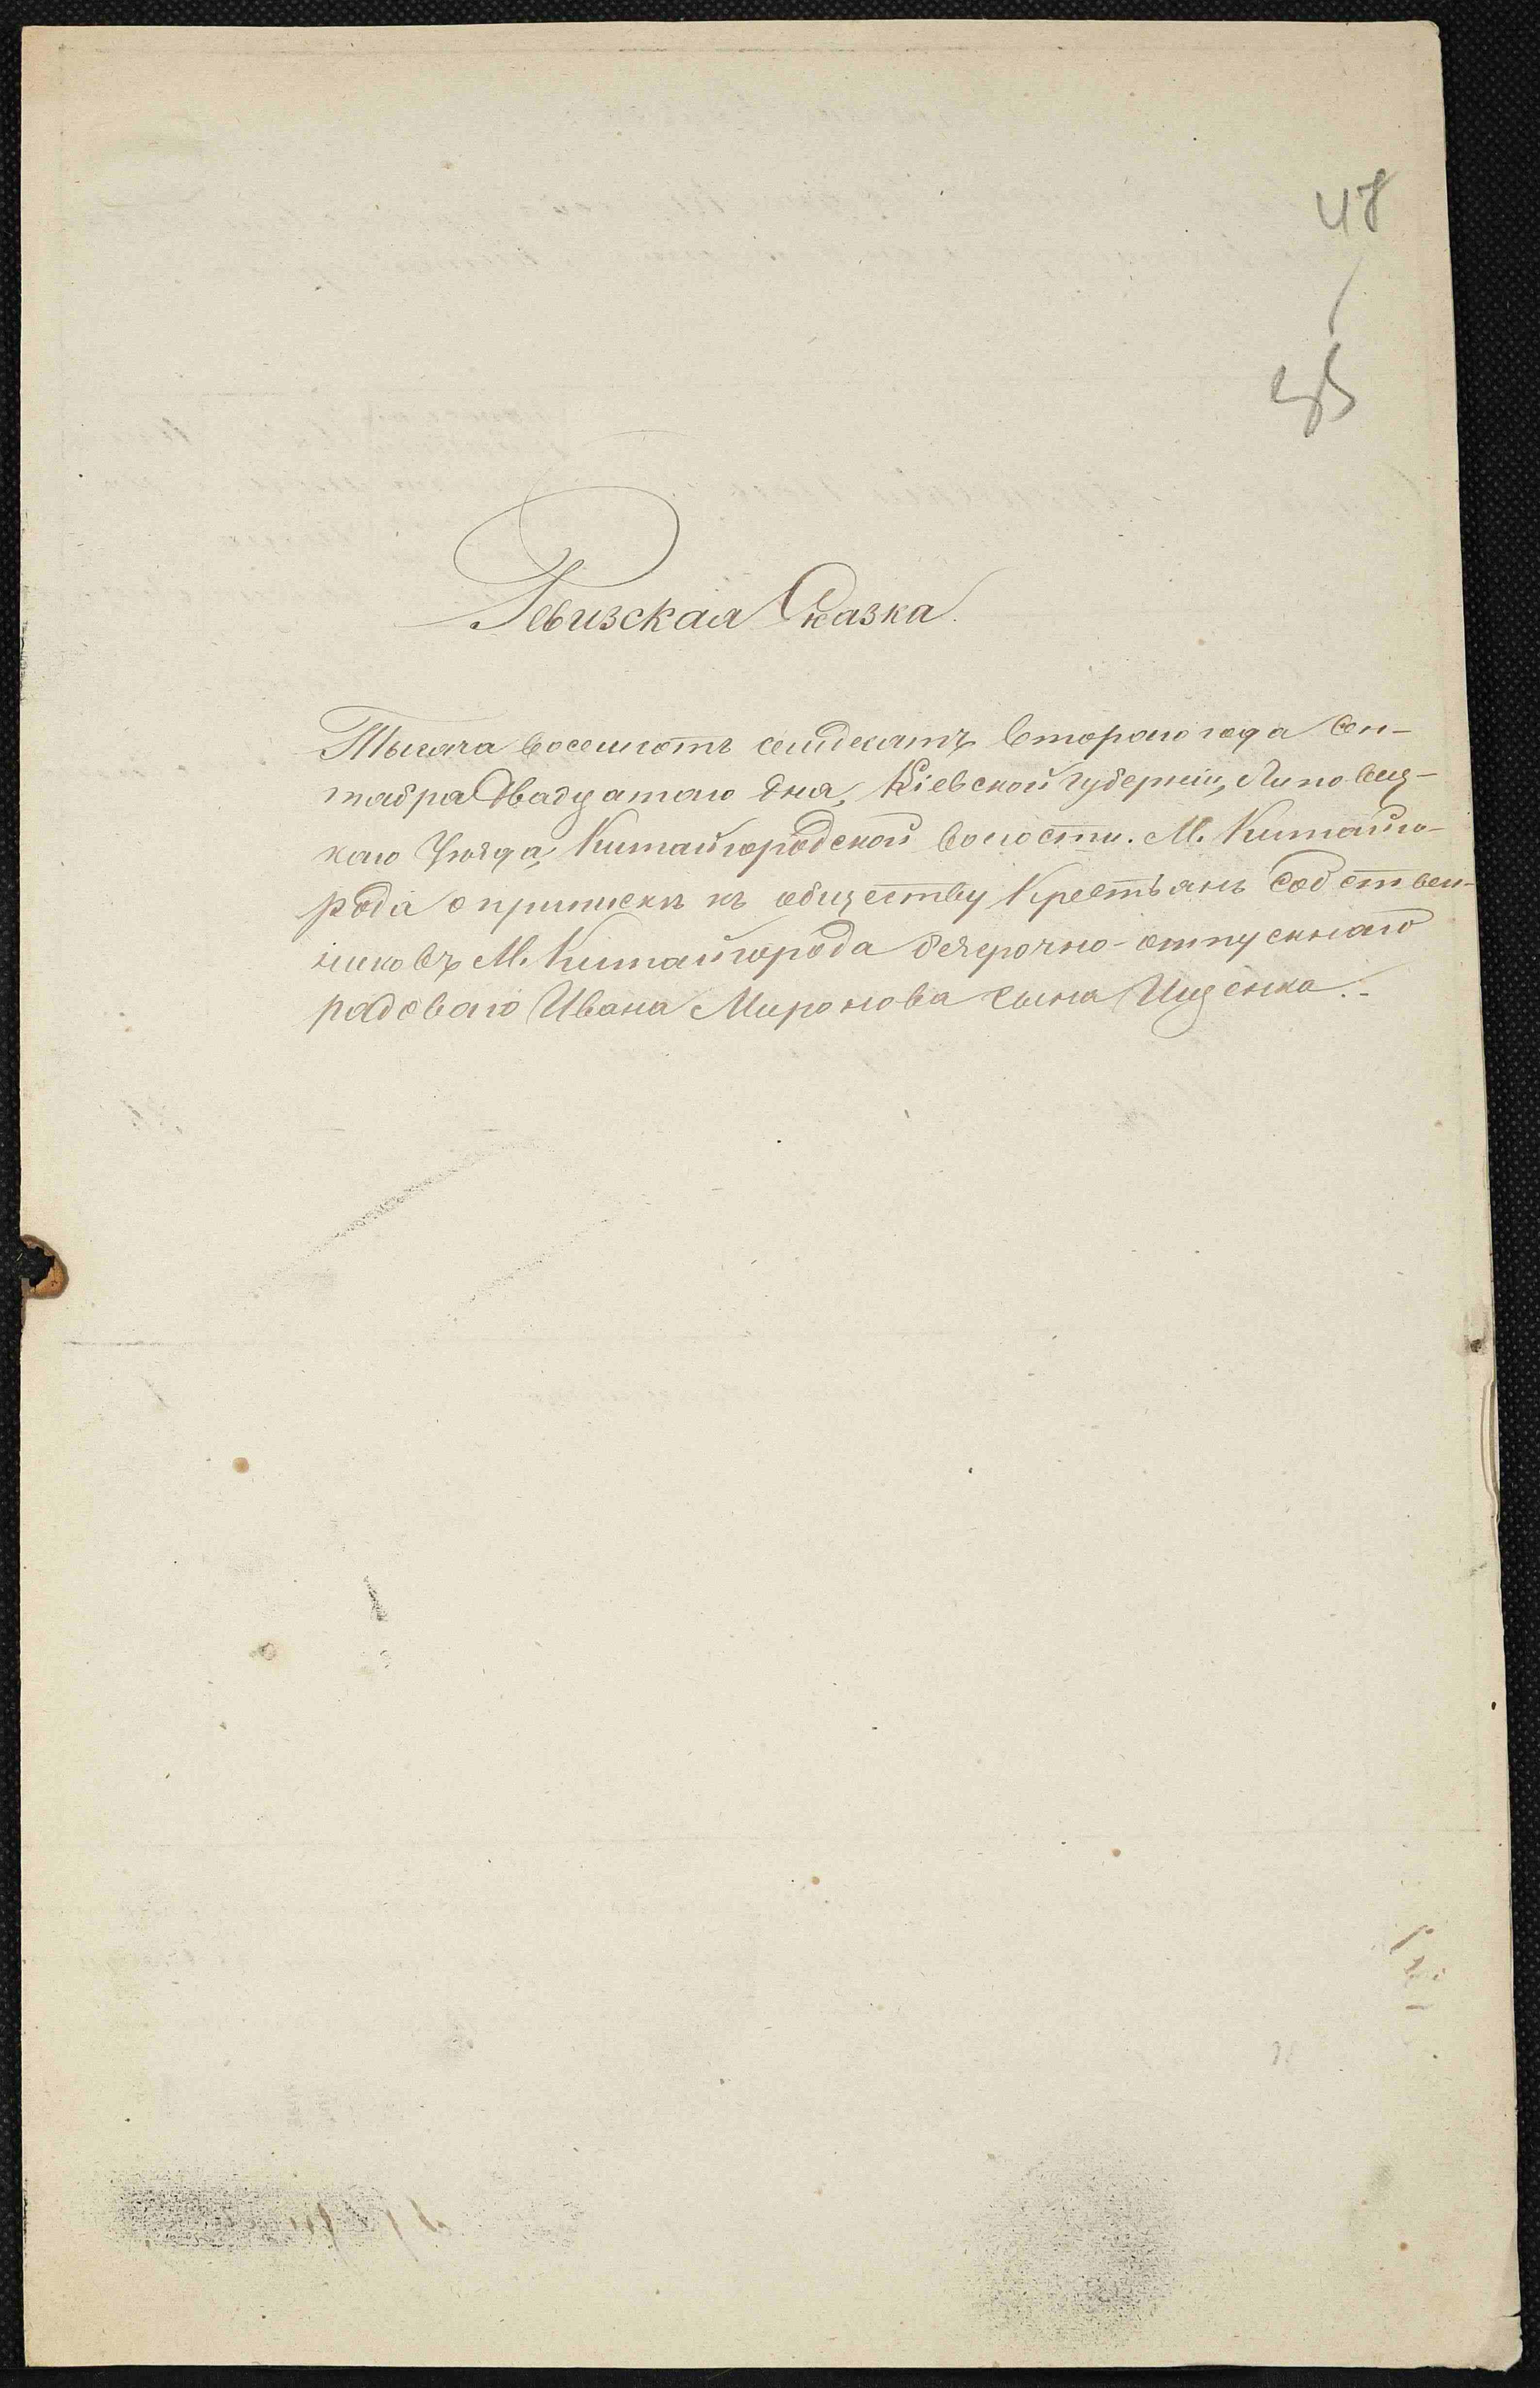 48
Ревизская Сказка.
Тысяча восемсотъ семдесятъ втораго года Сен-
тября Двадцатаго дня, Кіевской губерніи, Липовец-
каго Уѣзда, Китайгородской волости. М. Китайго-
рода о припискѣ къ обществу Крестьянъ Собствен-
никовъ М. Китайгорода безсрочно-отпускнаго
рядоваго Ивана Миронова сына Ищенка.